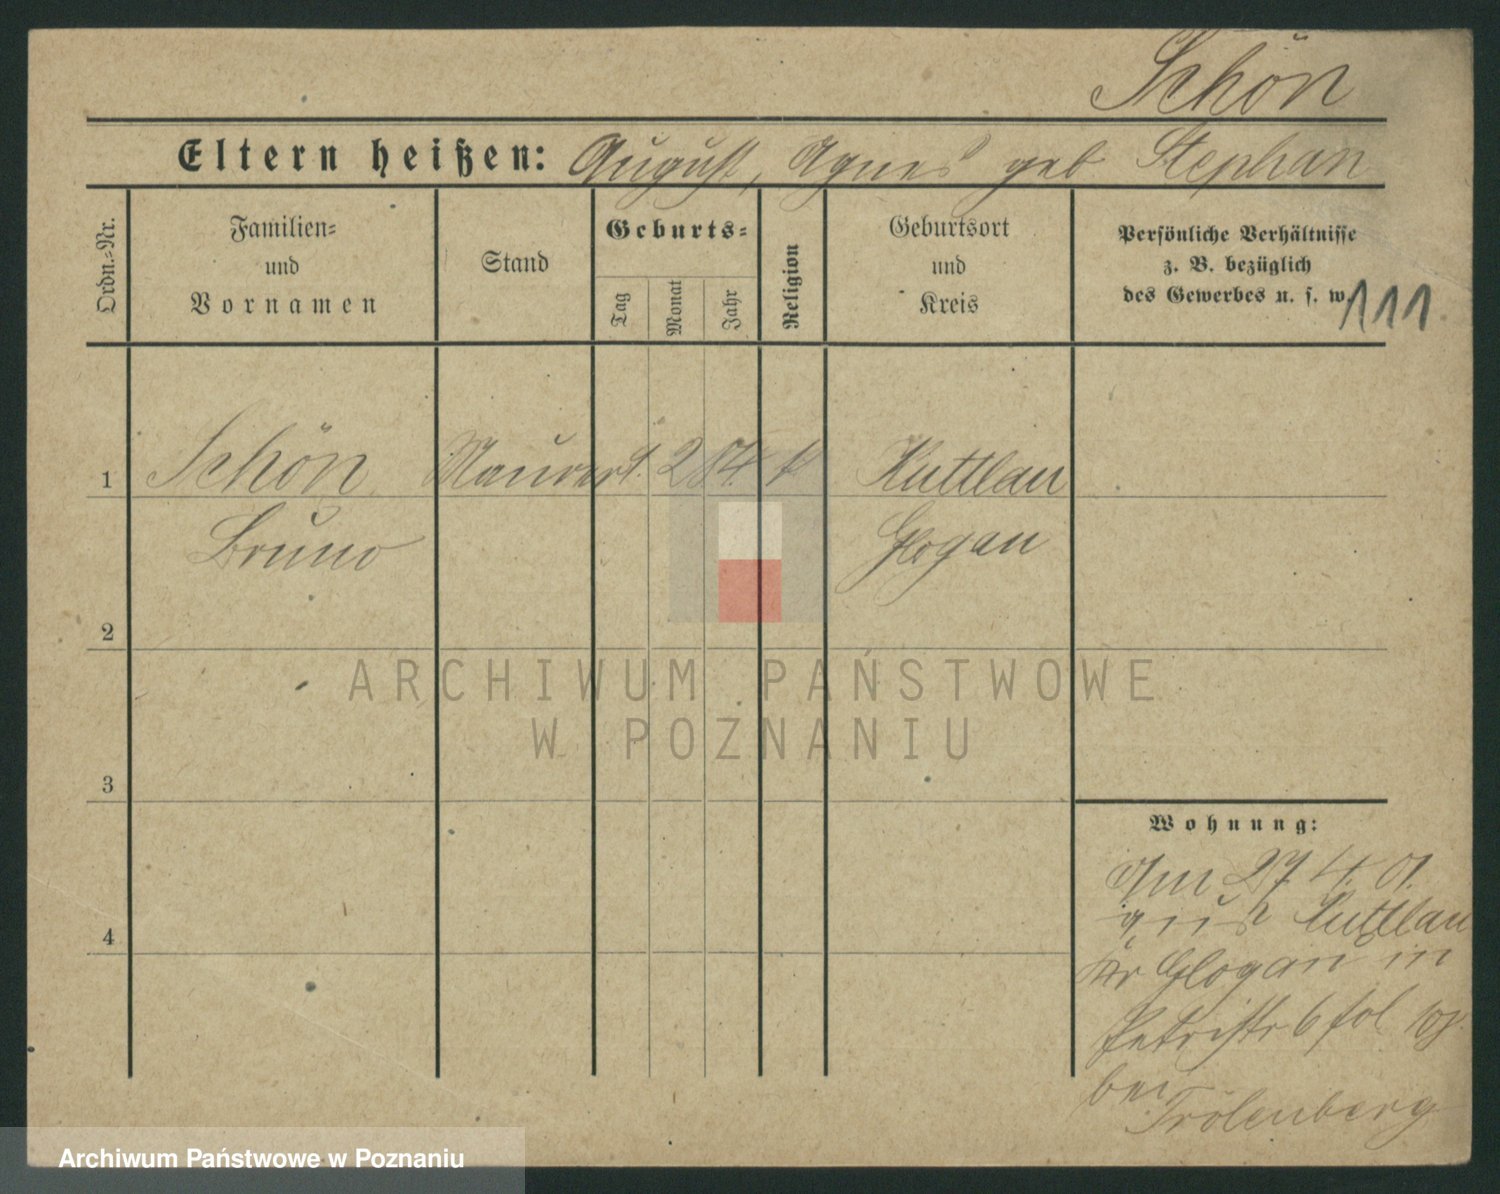 Schön
Eltern heißen: August, Agnes geb Stephan
Ordn.-Nr.
Familien-
und
Vornamen
Stand
Geburts-
Tag
Monat
Jahr
Religion
Geburtsort
und
Kreis
Persönliche Verhältnisse
z. B. bezüglich
des Gewerbes u. s. w.
111.
1
Schön Maurer 1. 2 84. k Kuttlau
Bruno Glogau
2
ARCHIWUM PAŃSTWOWE
W POZNANIU
3
Wohnung:
Am 27. 4. 01.
aus Kuttlau
4
Kr Glogau in
Petristr 6 fol
bei
Archiwum Państwowe w Poznaniu